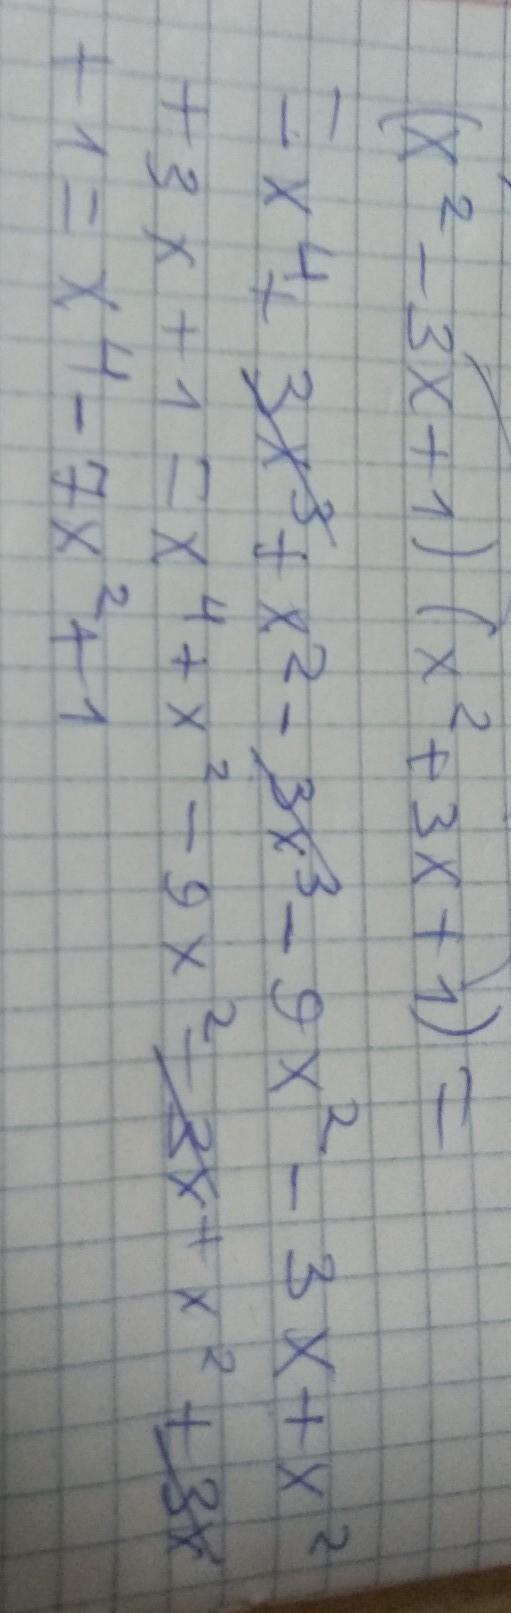 (x² - 3x + 1) (x² + 3x + 1) =
= x⁴ + 3x³ + x² - 3x³ - 9x² - 3x + x²
+ 3x + 1 = x⁴ + x² - 9x² - 3x + x² + 3x
+ 1 = x⁴ - 7x² + 1